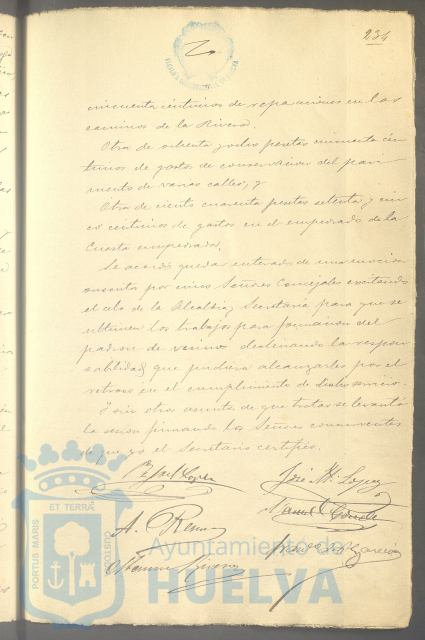 234
cincuenta céntimos de reparaciones en los
caminos de la Rivera.
Otra de ochenta y ocho pesetas cincuenta cén-
timos de gastos de conservacion del pavi-
mento de varias calles, y
Otra de ciento cuarenta pesetas setenta y cin-
co céntimos de gastos en el empedrado de la
Cuesta empedrada.
Se acordó quedar enterado de una mocion
suscrita por cinco Señores Concejales excitando
el celo de la Alcaldia y Secretaría para que se
ultimen los trabajos para formacion del
padron de vecinos declinando la respon-
sabilidad que pudiera alcanzarles por el
retraso en el cumplimiento de dicho servicio.
Y sin otros asuntos de que tratar se levantó
la sesion firmando los Señores concurrentes
de que yo el Secretario certifico.
Rafael Lopez
José M. Lopez
Manuel
A.
Garcia
ET TERRA
PORTUS MARIS
CUSTODIA
Ayuntamiento de
HUELVA